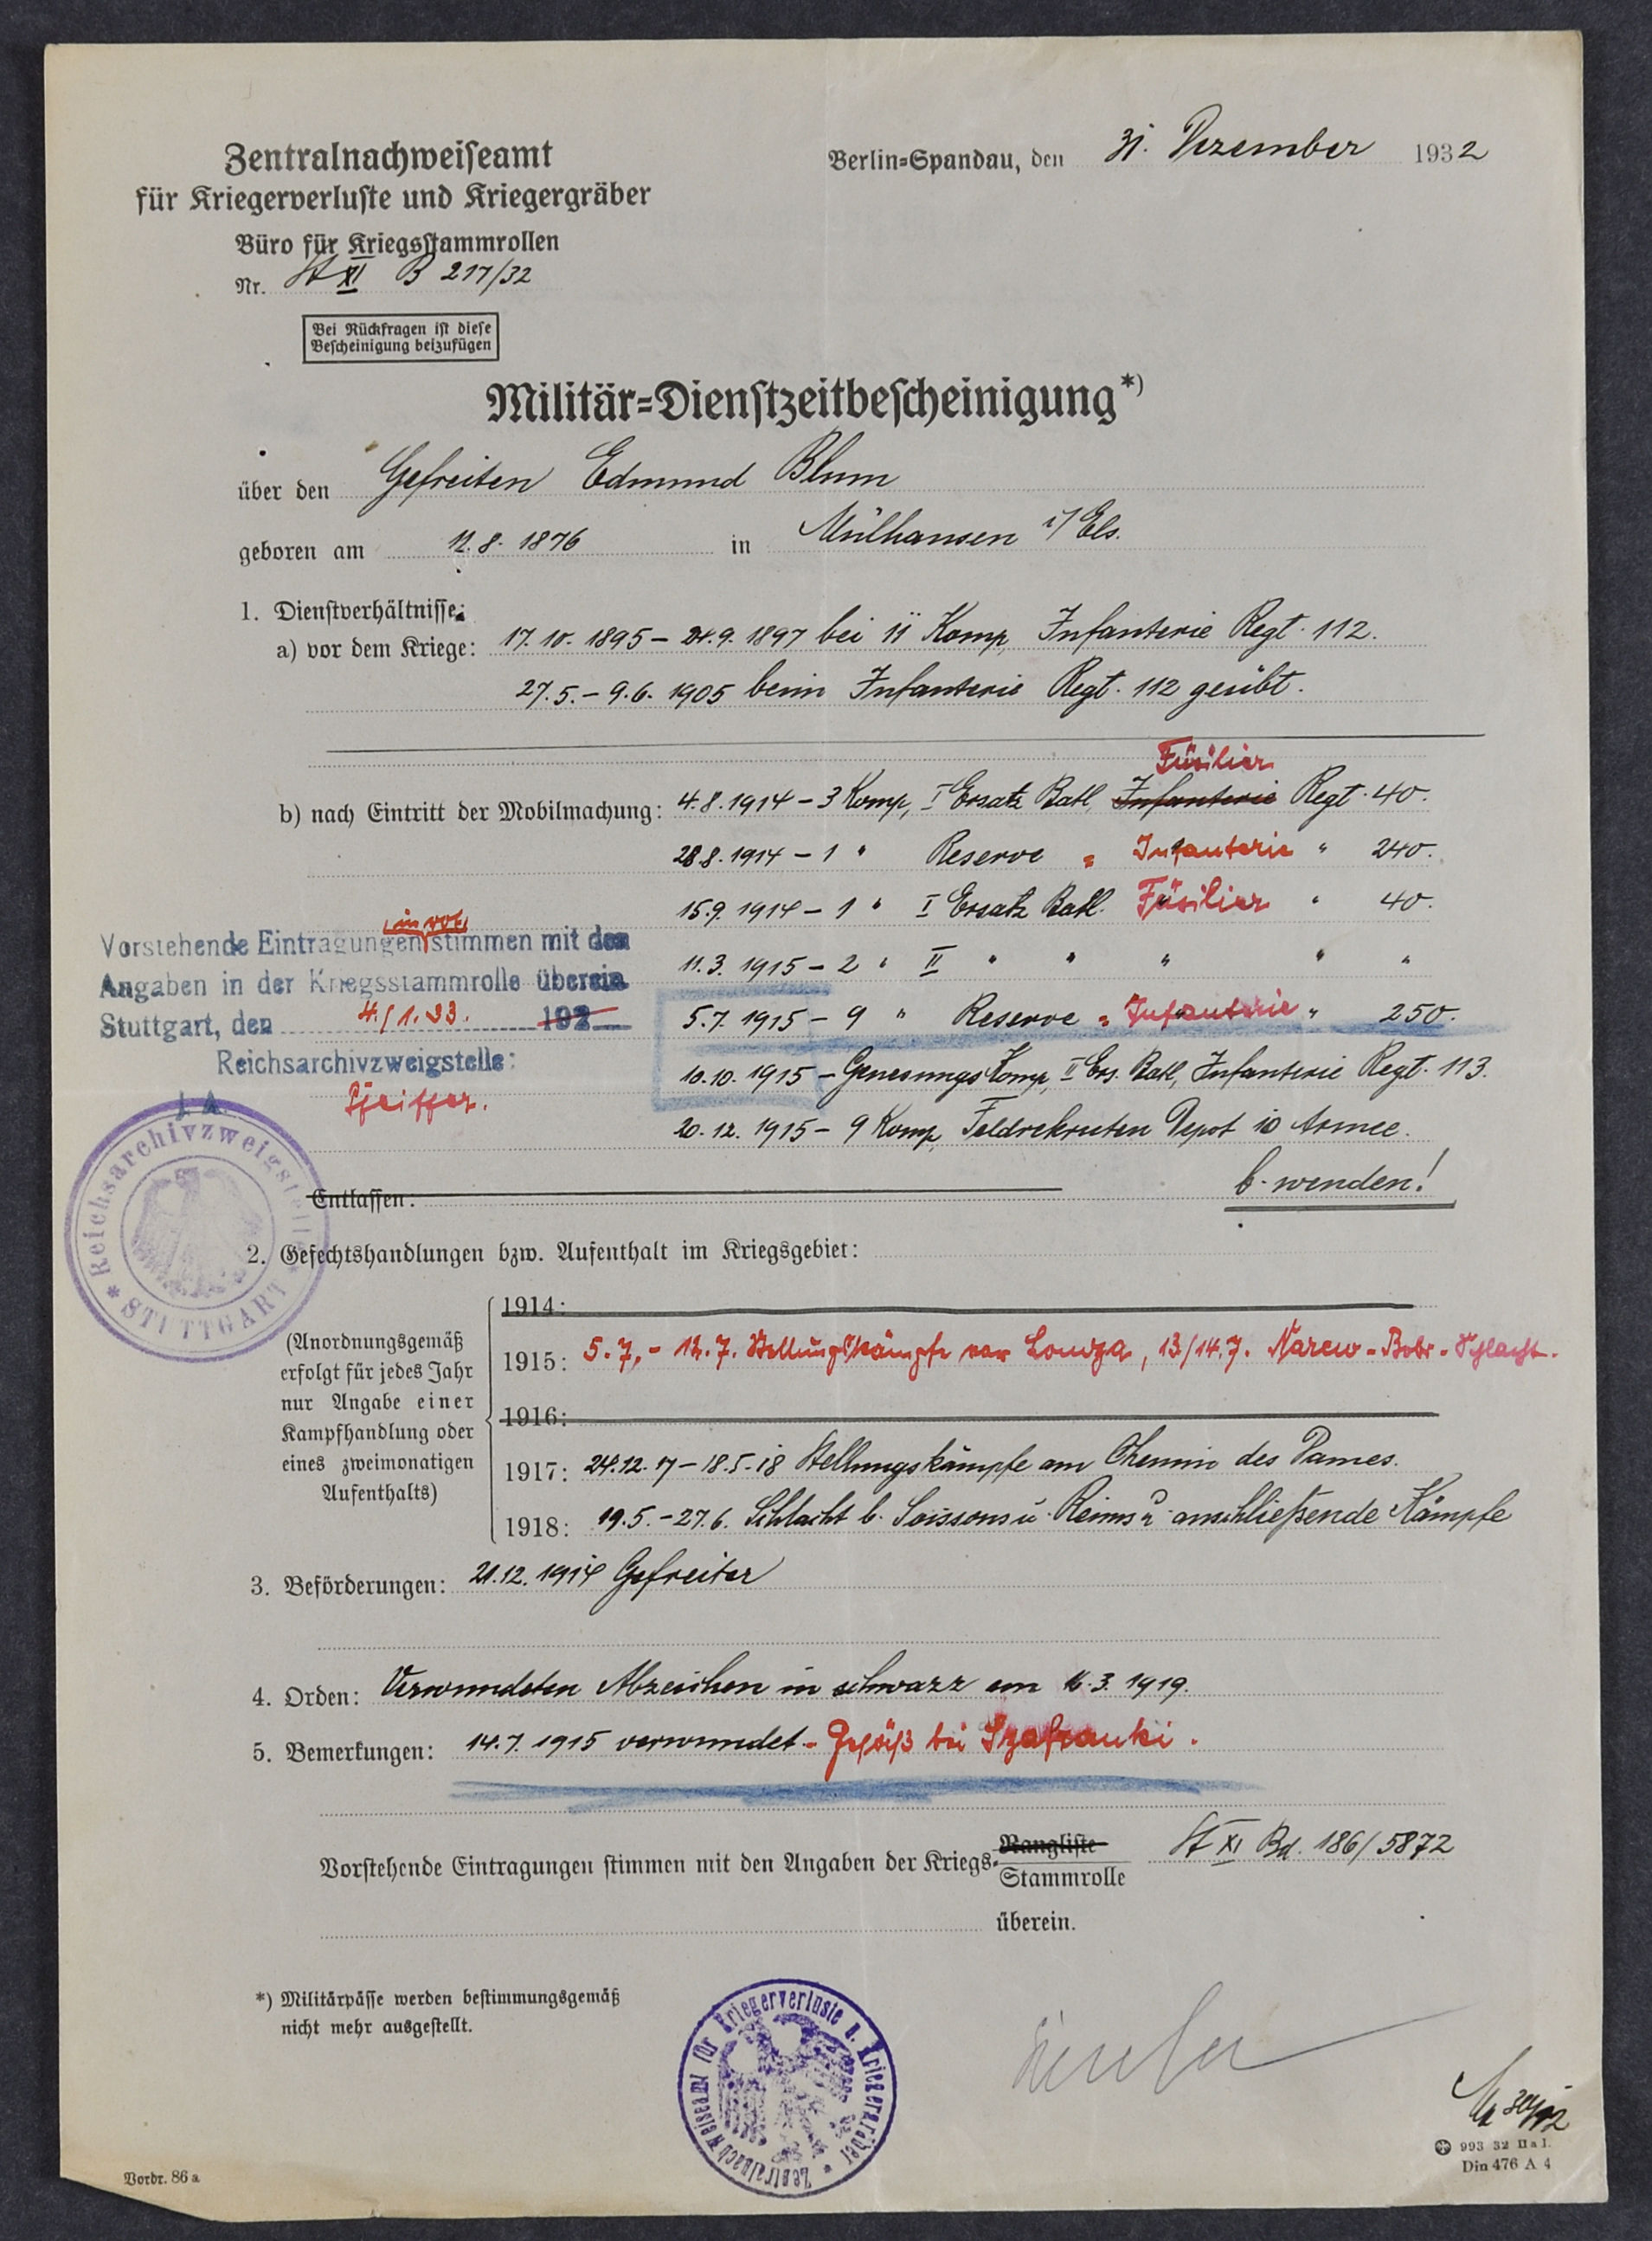 Zentralnachweiseamt
für Kriegerverluste und Kriegergräber
Büro für Kriegsstammrollen
Nr. St XI B 217/32
Berlin-Spandau, den 31. Dezember 1932
Bei Rückfragen ist diese
Bescheinigung beizufügen
Militär-Dienstzeitbescheinigung*)
über den Gefreiten Edmund Blum
geboren am 12.8.1876 in Mülhausen i/Els.
1. Dienstverhältnisse:
a) vor dem Kriege: 17.10.1895 – 21.9.1897 bei 11 Komp, Infanterie Regt. 112.
27.5. – 9.6. 1905 beim Infanterie Regt. 112 geübt.
Füsilier
b) nach Eintritt der Mobilmachung: 4.8.1914 – 3 Komp, I Ersatz Batl, Infanterie Regt. 40.
28.8.1914 – 1 " Reserve = Infanterie " 240.
15.9.1914 – 1 " I Ersatz Batl. Füsilier " 40.
11.3.1915 – 2 " II " " " " "
5.7.1915 – 9 " Reserve = Infanterie " 250.
10.10.1915 – Genesungs Komp, II Ers. Batl, Infanterie Regt. 113.
20.12.1915 – 9 Komp, Feldrekruten Depot 10 Armee.
in rot
Vorstehende Eintragungen stimmen mit den
Angaben in der Kriegsstammrolle überein
Stuttgart, den 4./1.33. 192
Reichsarchivzweigstelle:
J. A.
Pfeiffer.
* Reichsarchivzweigstelle * STUTTGART
Entlassen:
b. wenden!
2. Gefechtshandlungen bzw. Aufenthalt im Kriegsgebiet:
(Anordnungsgemäß
erfolgt für jedes Jahr
nur Angabe einer
Kampfhandlung oder
eines zweimonatigen
Aufenthalts)
1914:
1915: 5.7. – 12.7. Stellungskämpfe vor Lomza, 13/14.7. Narew-Bobr-Schlacht.
1916:
1917: 24.12.17 – 18.5.18 Stellungskämpfe am Chemin des Dames.
1918: 19.5. – 27.6. Schlacht b. Soissons u. Reims u. anschließende Kämpfe
3. Beförderungen: 21.12.1914 Gefreiter
4. Orden: Verwundeten Abzeichen in schwarz am 16.3.1919.
5. Bemerkungen: 14.7.1915 verwundet – Gesäß bei Szafranki.
Vorstehende Eintragungen stimmen mit den Angaben der Kriegs-
Rangliste
Stammrolle
St XI Bd. 186/5872
überein.
*) Militärpässe werden bestimmungsgemäß
nicht mehr ausgestellt.
Zentralnachweiseamt für Kriegerverluste u. Kriegergräber *
993 32 II a 1.
Din 476 A 4
Vordr. 86 a